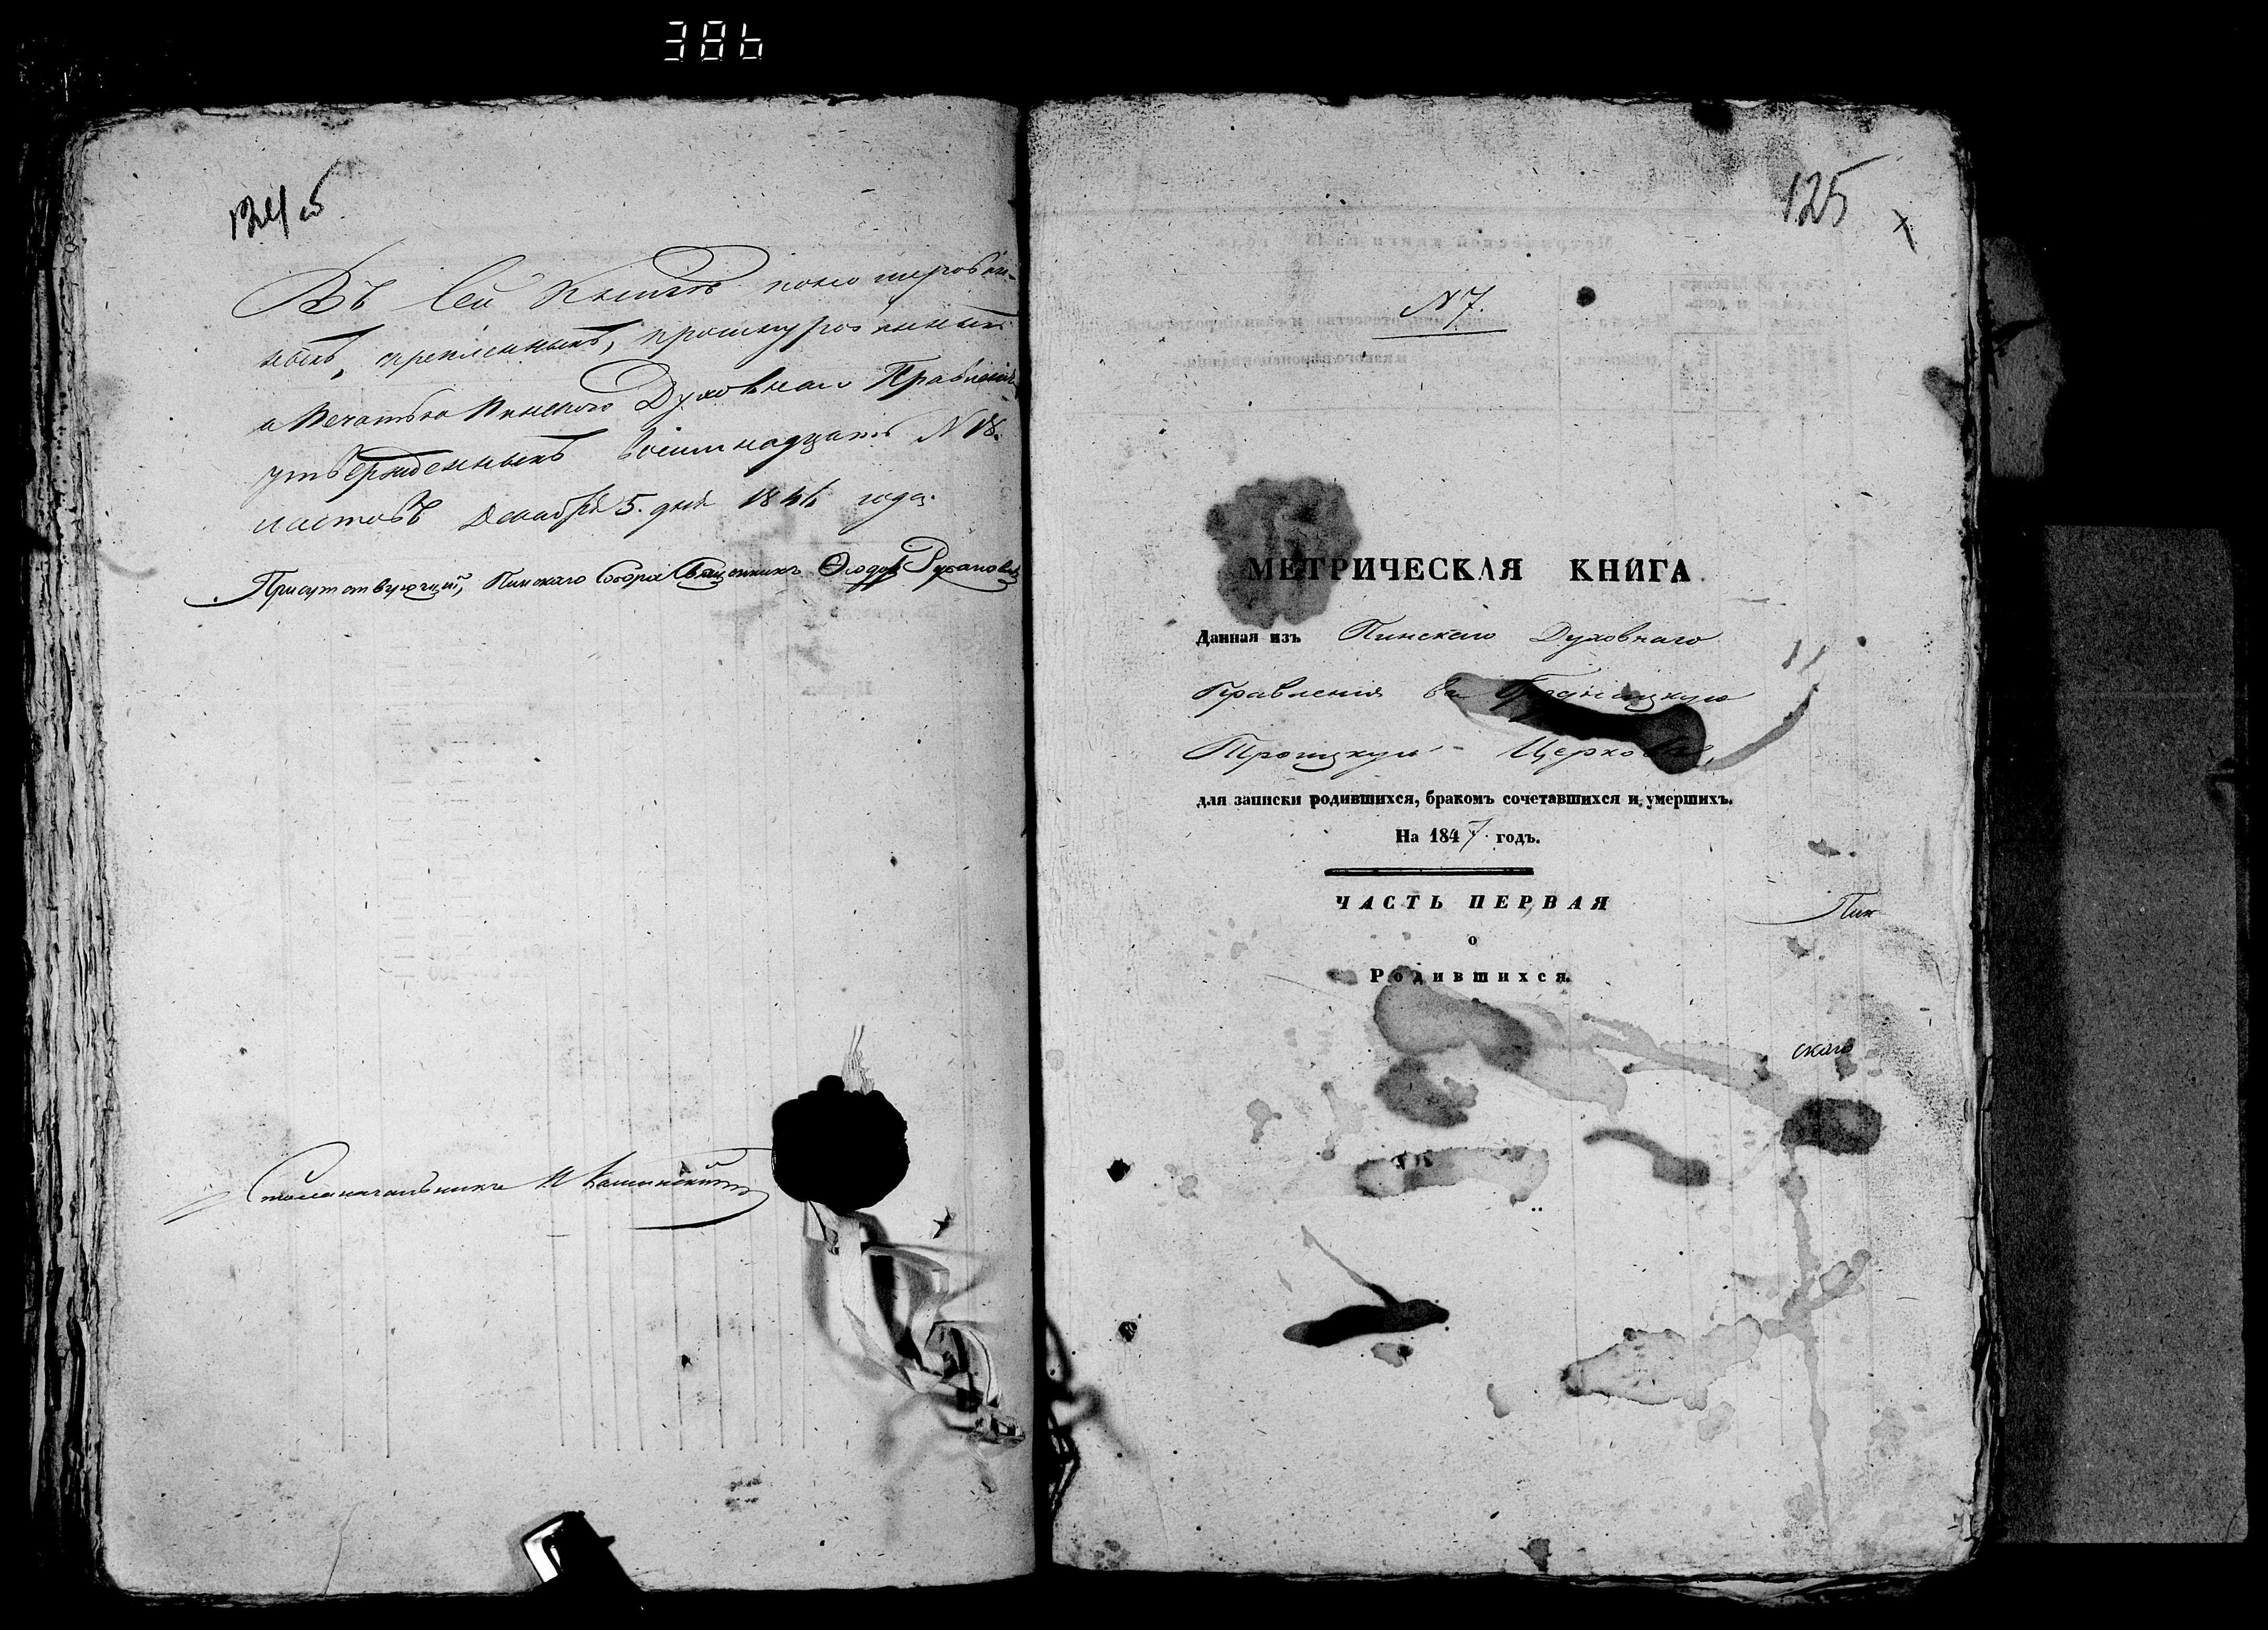 386
124 об
125
Въ сей Книгѣ номерован-
ныхъ, скрепленныхъ, прошнурованныхъ
и Печатью Пинского Духовнаго Правленія
утвержденныхъ восимнадцать N 18.
листовъ Декабря 5. дня 1846 года.
Присутствующій, Пинскаго Собора Священникъ Ѳеодор
Столоначальникъ
N 7.
МЕТРИЧЕСКАЯ КНИГА
Данная изъ Пинскаго Духовнаго
Правленія въ
Троицкую Церковь,
для записки родившихся, бракомъ сочетавшихся и умершихъ.
На 1847 годъ.
ЧАСТЬ ПЕРВАЯ
о
Родившихся.
Пин
скаго